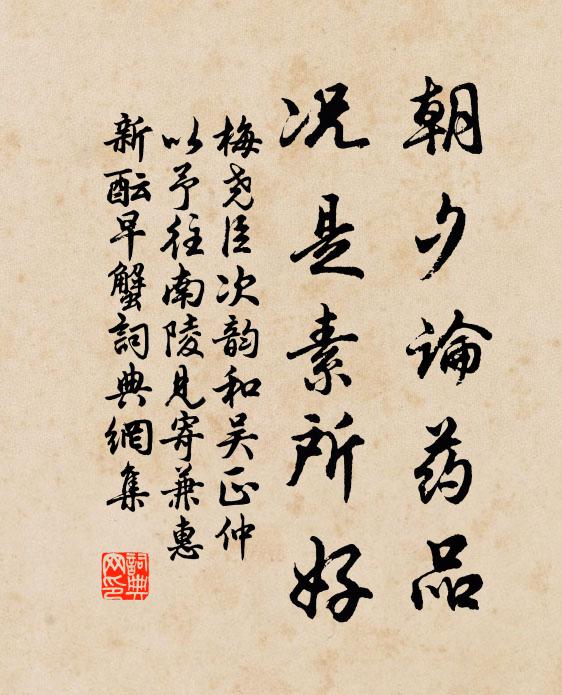 朝夕论药品
况是素所好
梅尧臣次韵和吴正仲
以予往南陵见寄兼惠
新酝早蟹詞典網集
詞典網印